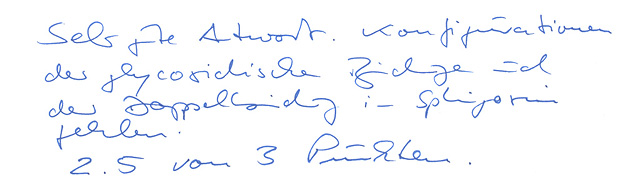 Sehr gute Antwort. Konfigurationen
der glycosidische Bindung und
der Doppelbindung im Sphingosin
fehlen.
2.5 von 3 Punkten.